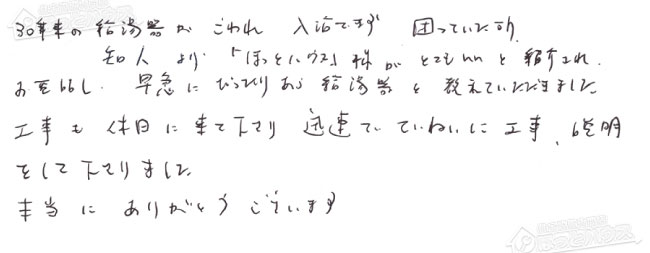 30年来の給湯器がこわれ 入浴できず 困っていた所
知人より 「ほっとハウス」様が とてもいいと紹介され
お電話し、早急に ぴったりあう 給湯器を 教えていただきました。
工事も 休日に来て下さり 迅速で ていねいに工事、説明
をして下さりました。
本当に ありがとうございます